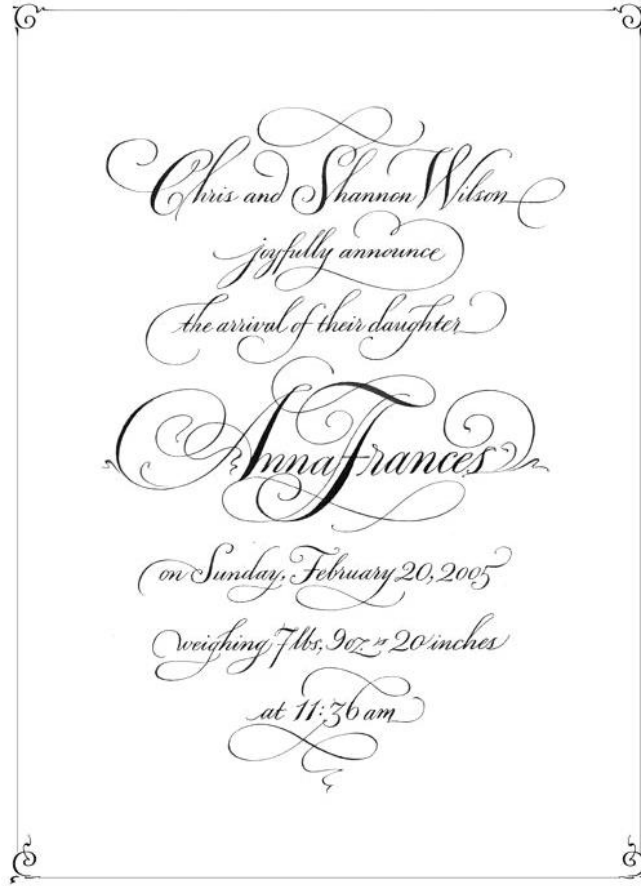 Chris and Shannon Wilson
joyfully announce
the arrival of their daughter
Anna Frances
on Sunday, February 20, 2005
weighing 7 lbs, 9 oz. 20 inches
at 11:36 am